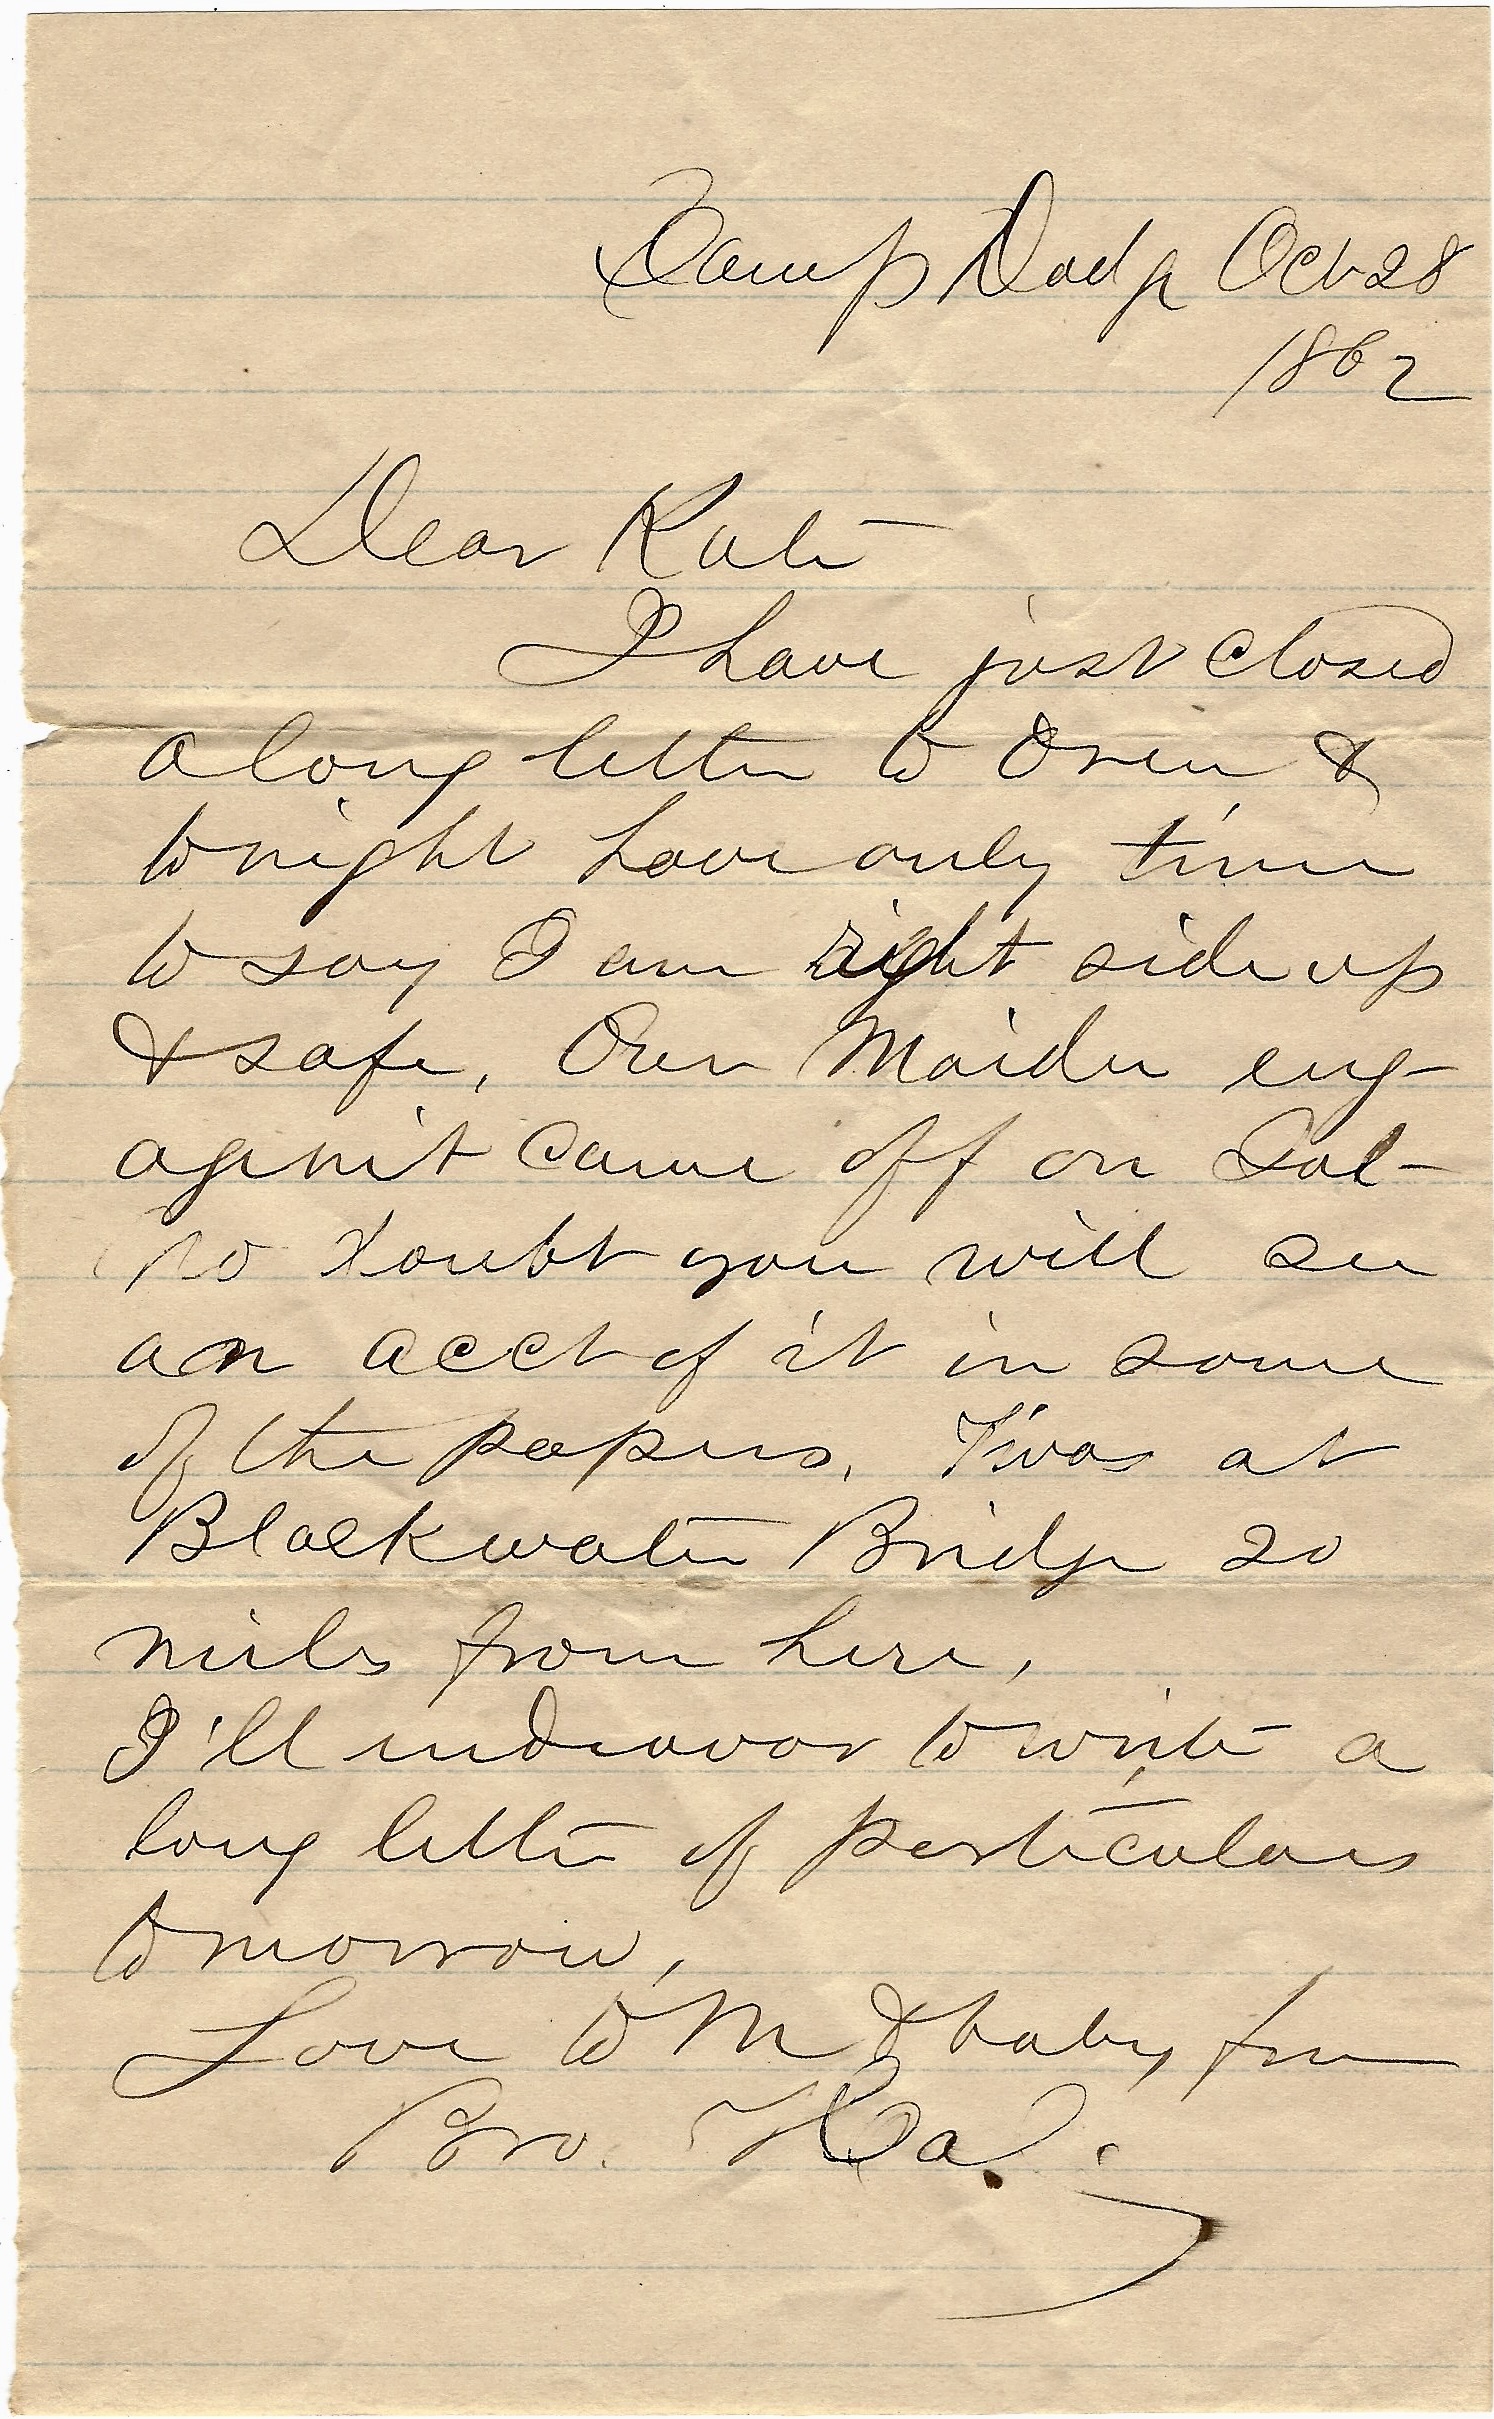 Camp Dodge Oct 28
1862
Dear Kate
I have just closed
a long letter to Oren &
tonight have only time
to say I am right side up
& safe. Our Maiden eng-
agemt came off on Sat-
no doubt you will see
an acct of it in some
of the papers. T'was at
Blackwater Bridge 20
miles from here.
I'll endeavor to write a
long letter of perticulars
tomorrow.
Love to M & baby from
Bro.